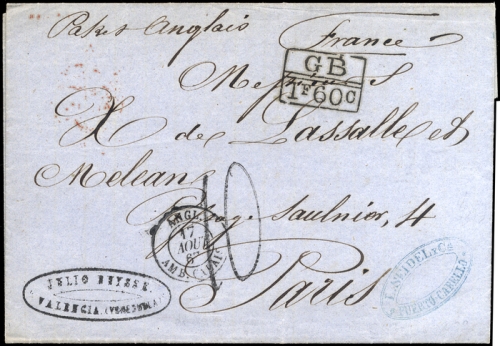 Paket Anglais
France
GB
1F60C
Messieurs
X de Lassalle et
Melean
Saulnier, 4
Paris
10
ANGL.
17
AOUT
AMB. CALAIS
JULIO
VALENCIA. (VENEZUELA)
PUERTO-CABELLO